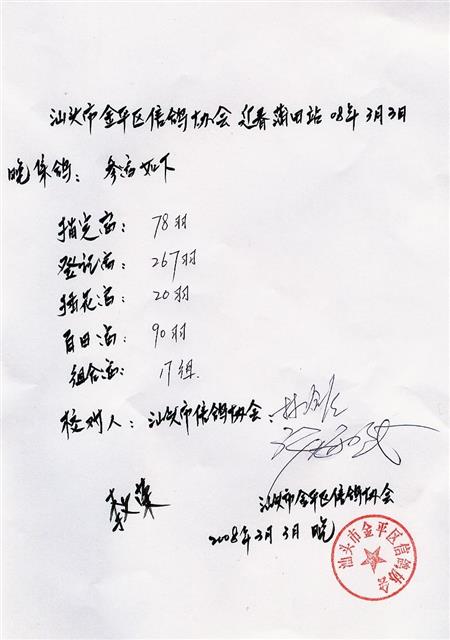 汕头市金平区信鸽协会迎春莆田站08年3月3日
晚集鸽:参赛如下
指定赛: 78羽
登记赛: 267羽
插花赛: 20羽
自由赛: 90羽
组合赛: 17组
校对人:汕头市信鸽协会:
汕头市金平区信鸽协会
2008年3月3日晚
汕头市金平区信鸽协会